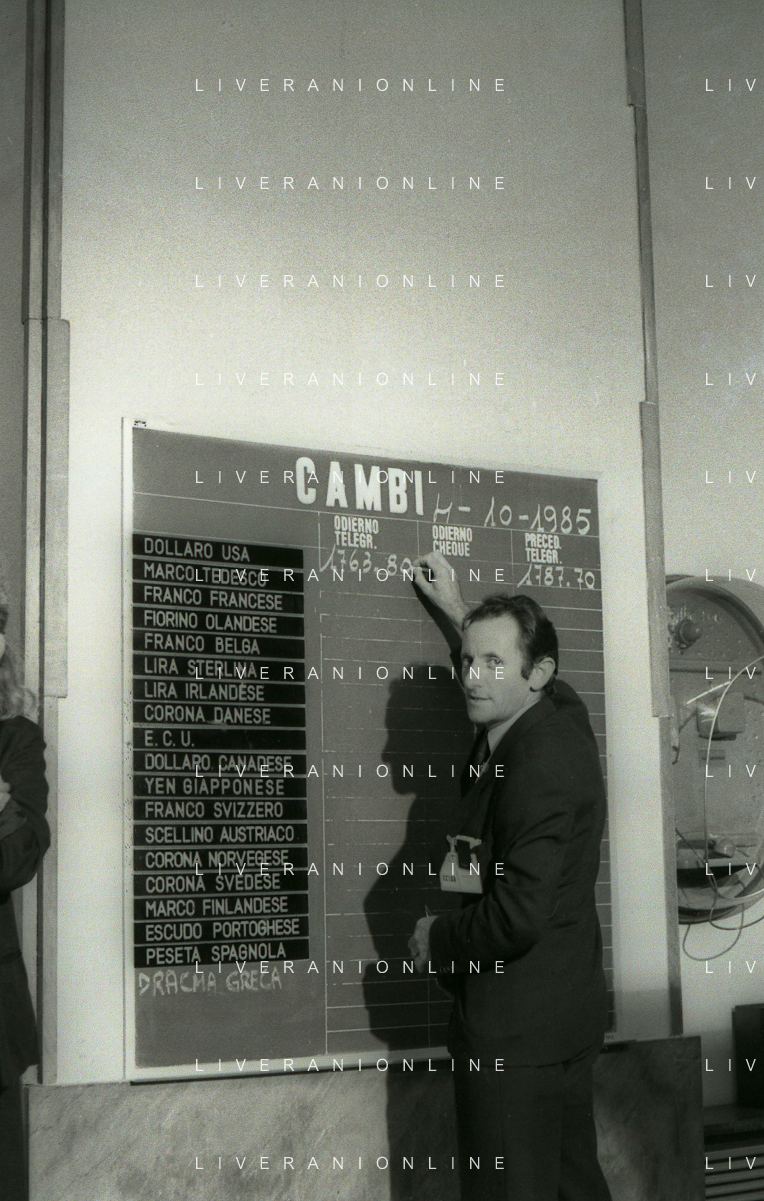 LIVERANIONLINE LIV
LIVERANIONLINE LIV
LIVERANIONLINE LIV
LIVERANIONLINE LIV
CAMBI
LIVERANIONLINE LIV
4-10-1985
ODIERNO TELEGR.
ODIERNO CHEQUE
PRECED. TELEGR.
DOLLARO USA 1763.80 1787.70
MARCO TEDESCO
LIVERANIONLINE LIV
FRANCO FRANCESE
FIORINO OLANDESE
FRANCO BELGA
LIRA STERLINA
LIVERANIONLINE LIV
LIRA IRLANDESE
CORONA DANESE
E.C.U.
DOLLARO CANADESE
LIVERANIONLINE LIV
YEN GIAPPONESE
FRANCO SVIZZERO
SCELLINO AUSTRIACO
CORONA NORVEGESE
LIVERANIONLINE LIV
CORONA SVEDESE
MARCO FINLANDESE
ESCUDO PORTOGHESE
PESETA SPAGNOLA
LIVERANIONLINE LIV
DRACMA GRECA
LIVERANIONLINE LIV
LIVERANIONLINE LIV